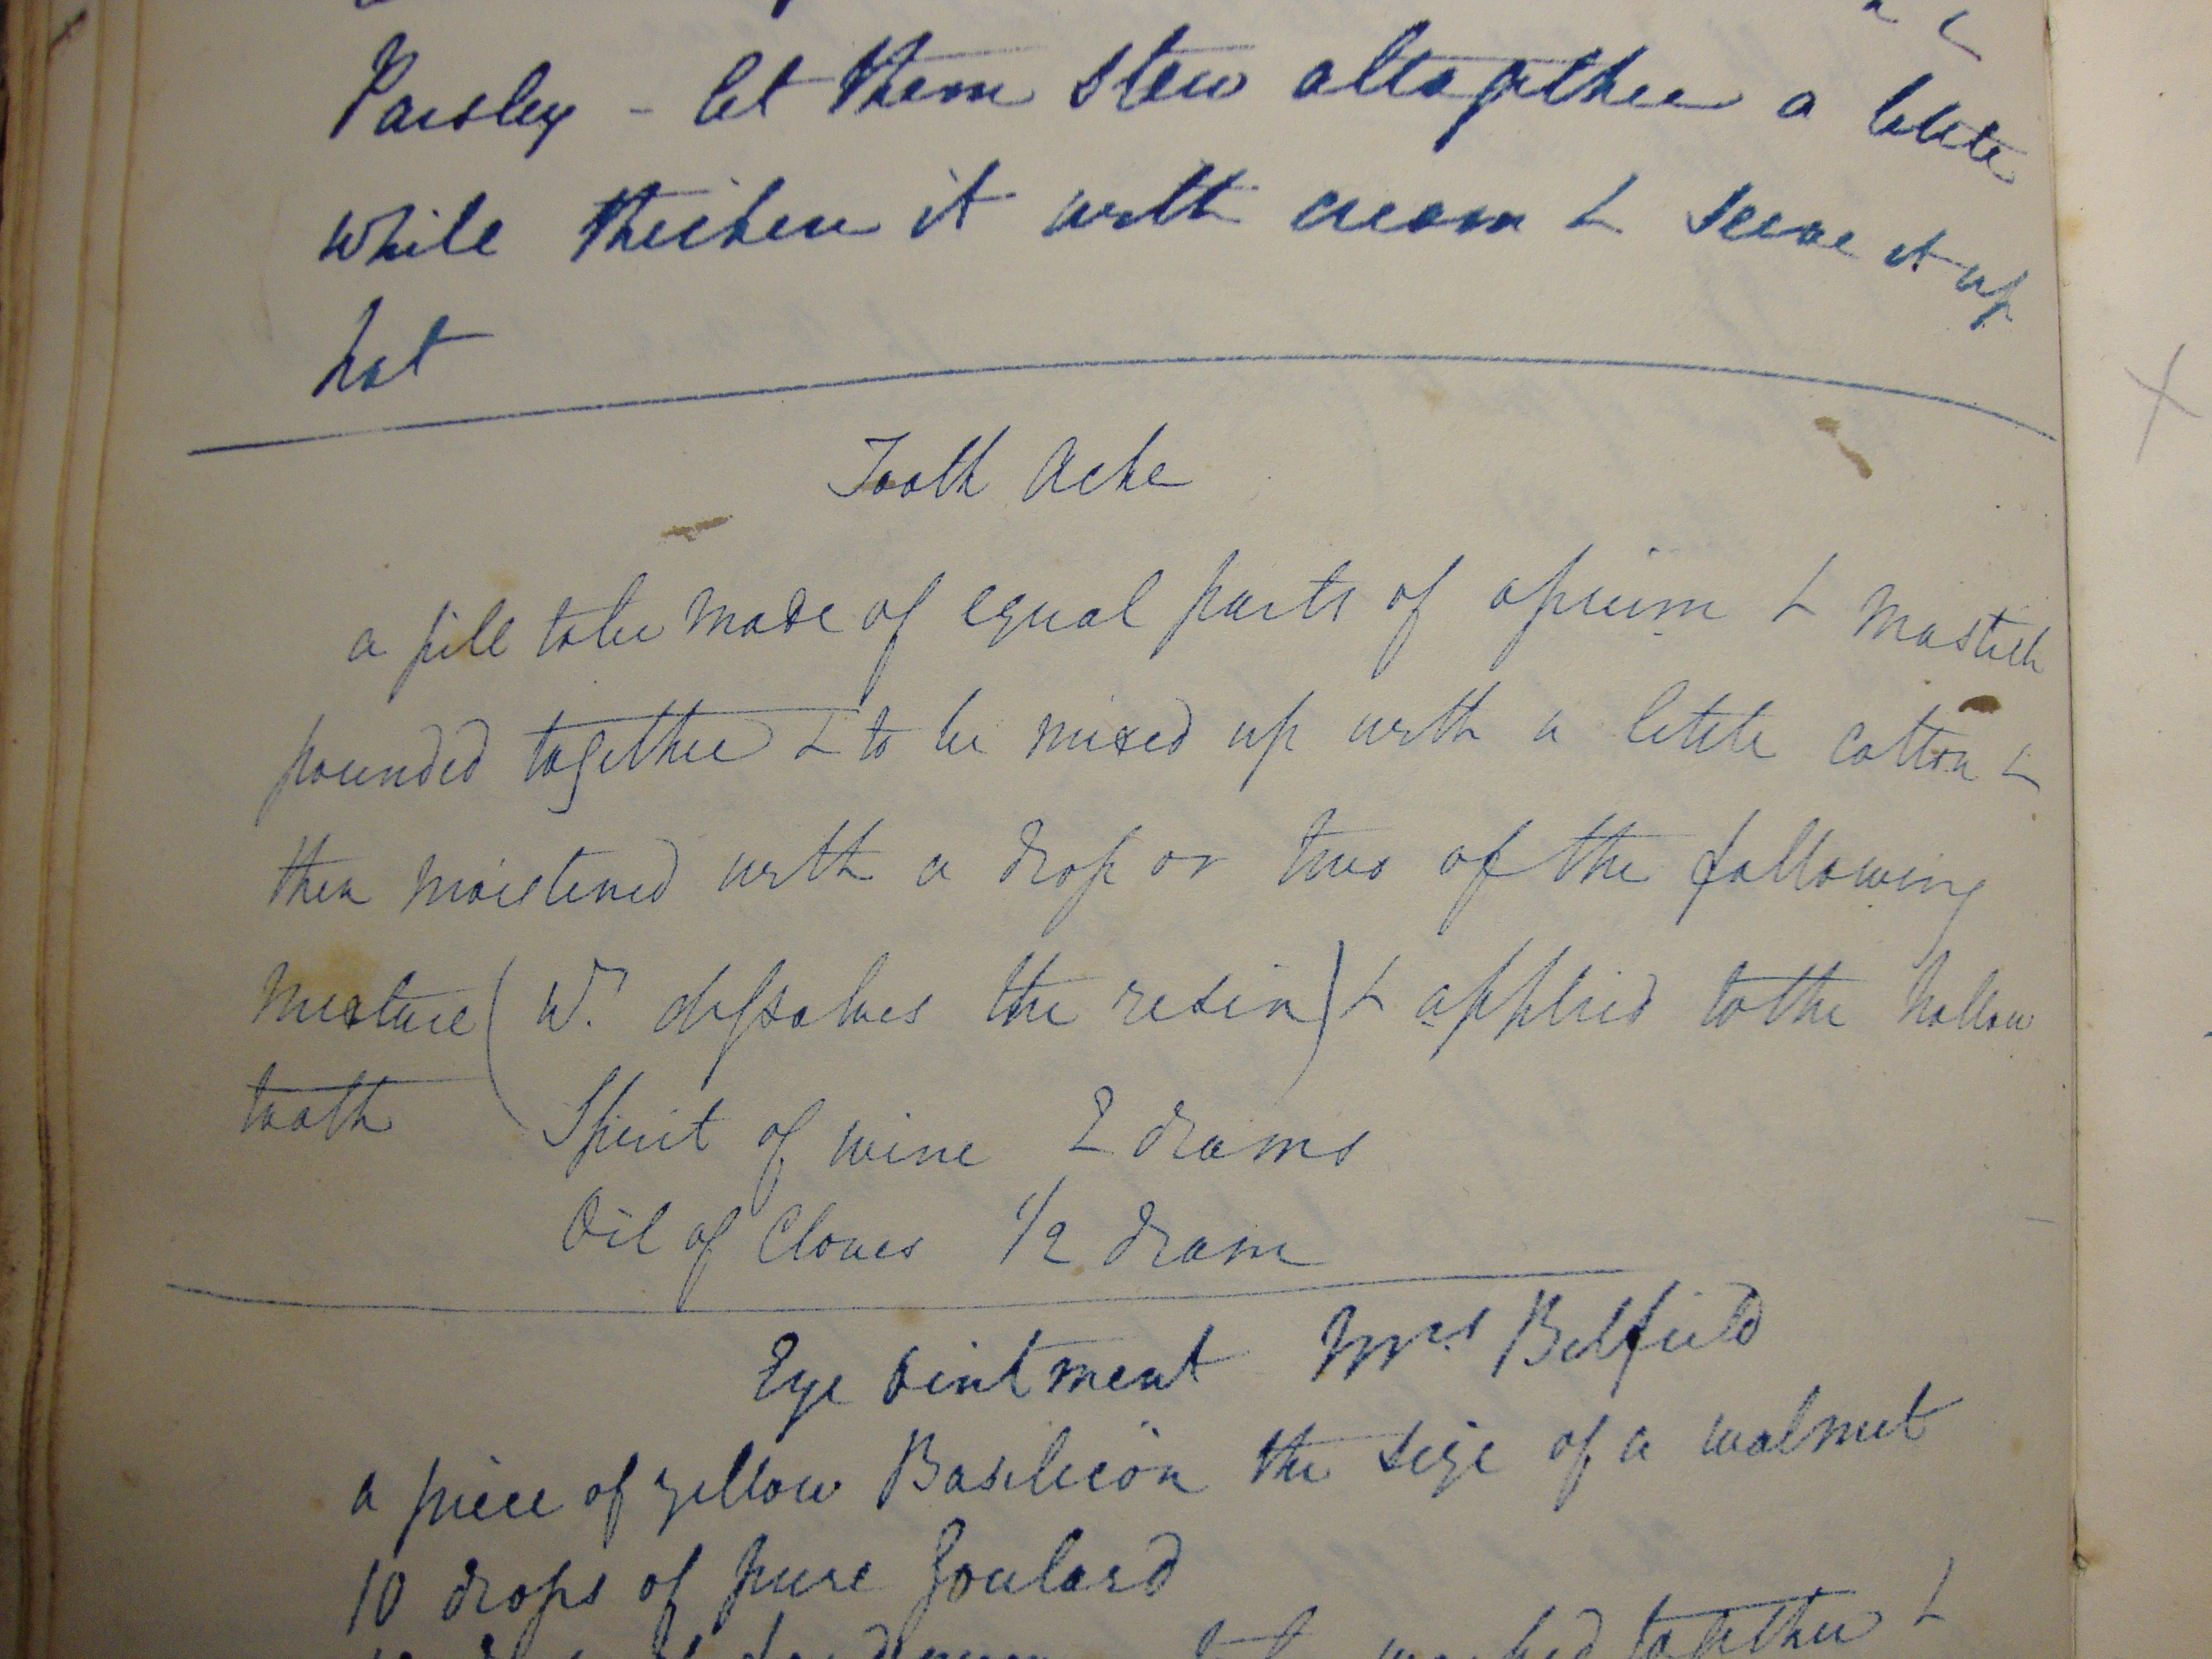 Parsley - let them stew altogether a little
while thicken it with cream & serve it up
hot
Tooth Ache
a pill to be made of equal parts of opium & Mastich
pounded together & to be mixed up with a little cotton &
then moistened with a drop or two of the following
mixture ( wh. dissolves the resin) & applied to the hollow
tooth
Spirit of wine 2 drams
Oil of Cloves 1/2 dram
Eye Ointment Mrs Belfield
a piece of yellow Basilicon the size of a walnut
10 drops of pure Goulard
worked together &